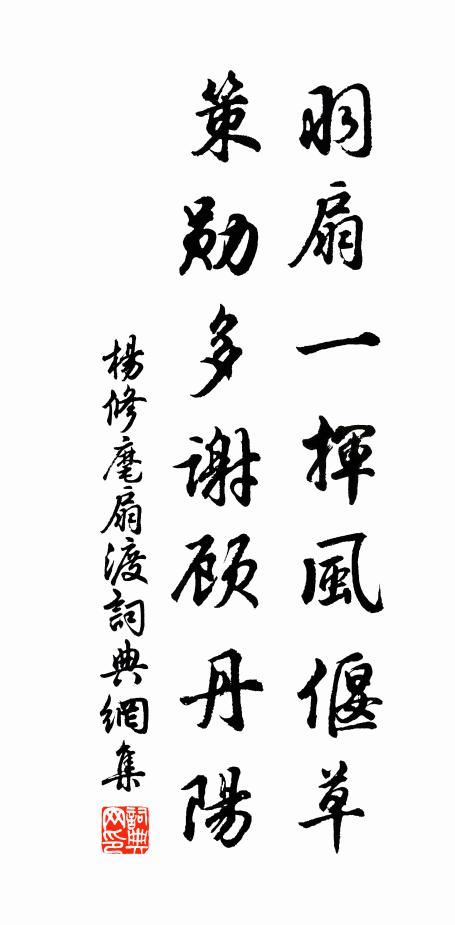 羽扇一揮風偃草
策勛多謝顧丹陽
楊修麾扇渡詞典網集
詞典網印